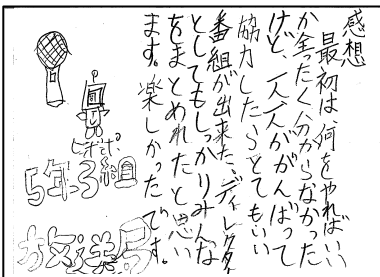 感想
最初は、何をやればいい
か全ったく分からなかった
けど、一人一人ががんばって
協力したらとてもいい
番組が出来た、ディレクター
としてもしっかりみんな
をまとめれたと思い
ます。楽しかったです。
ヒボボ
5年3組
放送局